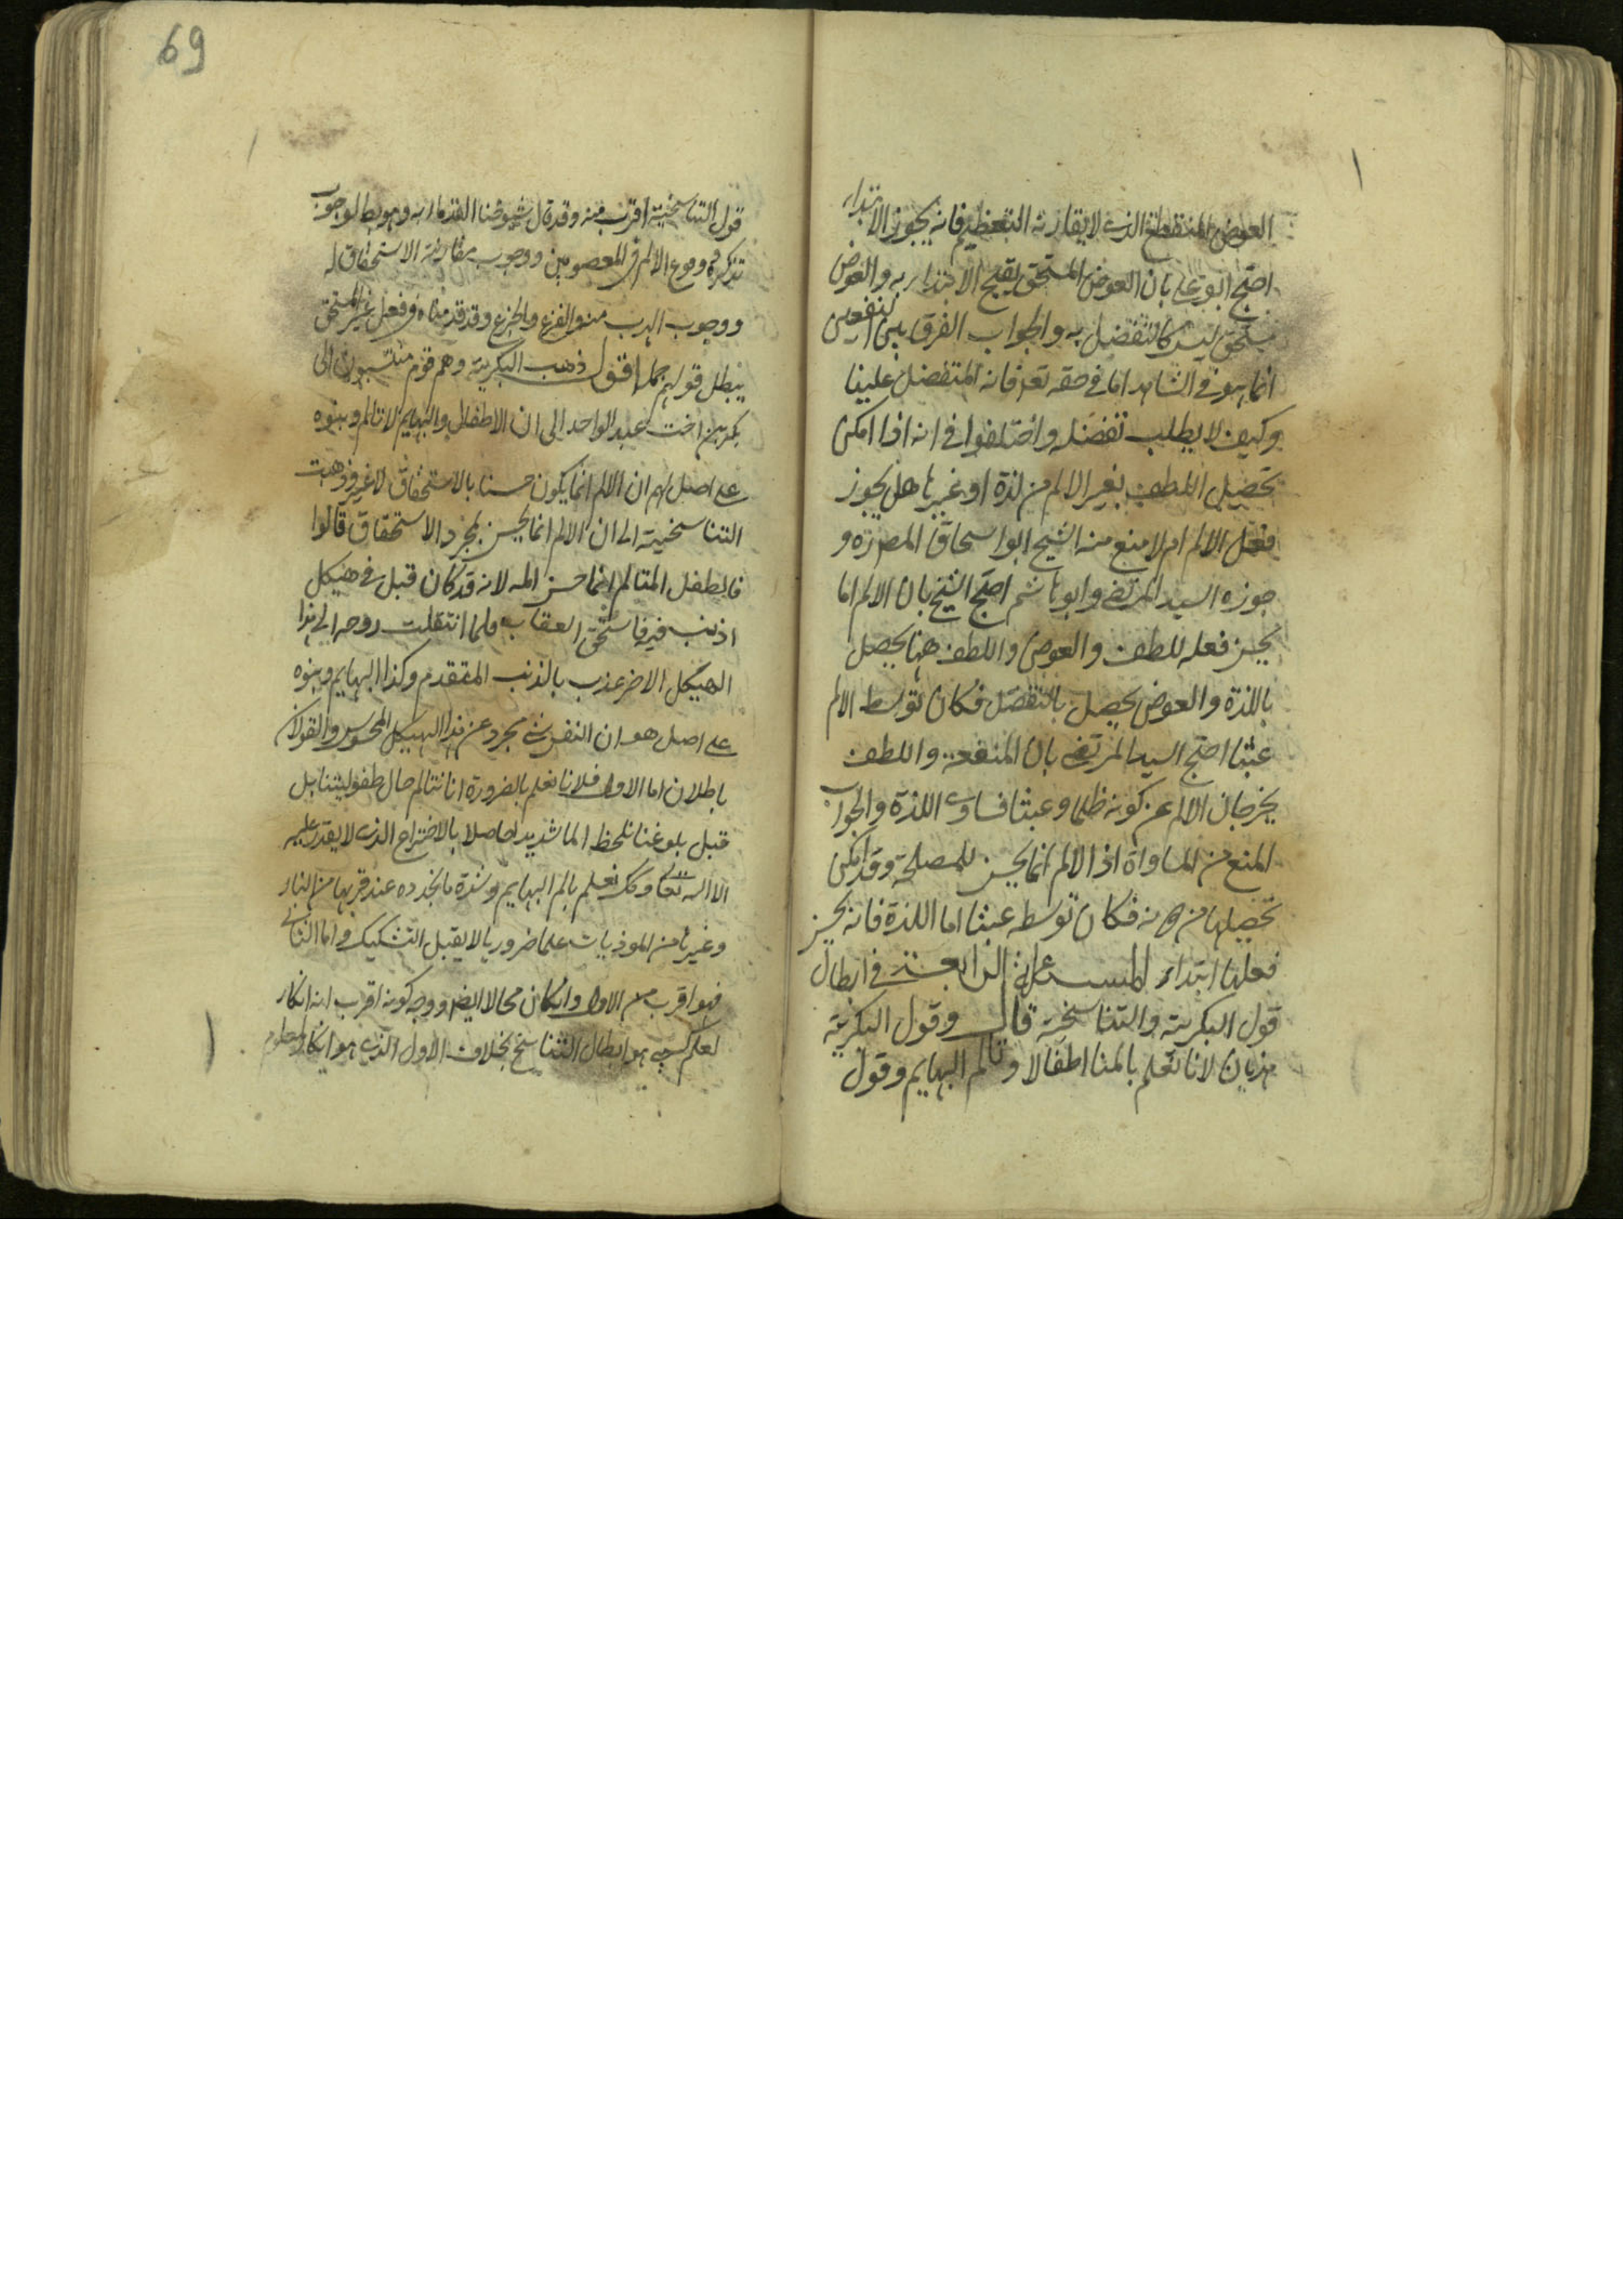 69
العوض المنقطع الذى لا يقارنه التعظيم فانه يجوز الابتداء
احتج ابو على بان العوض المستحق يقبح الابتداء به والعوض
مستحق ليس كالتفضل به والجواب الفرق بين النفعين
انما هو فى الشاهد اما فى حقه تعالى فانه المتفضل علينا
وكيف لا يطلب تفضله واختلفوا فى انه اذا امكن
تحصيل اللطف بغير الالم من لذة او غيرها هل يجوز
فعل الالم ام لا منع منه الشيخ ابو اسحاق المصنف ره و
جوزه السيد المرتضى وابو هاشم احتج الشيخ بان الالم انما
يحسن فعله للطف والعوض واللطف ههنا يحصل
باللذة والعوض يحصل بالتفضل فكان توسط الالم
عبثا احتج السيد المرتضى بان المنفعة واللطف
يخرجان الالم عن كونه ظلما وعبثا فساوى اللذة والجواب
المنع من المساواة اذ الالم انما يحسن للمصلحة وقد امكن
تحصيلها من دونه فكان توسطه عبثا اما اللذة فانه يحسن
فعلها ابتداء المسئلة الرابعة فى ابطال
قول البكرية والتناسخية قال وقول البكرية
هذيان لانا نعلم بالمنا اطفالا وتالم البهايم وقول
قول التناسخية اقرب منه وقد قال شيوخنا القدماء به وهو بط لوجوب
تذكره ووقوع الالم فى المعصومين ووجوب مقارنة الاستحقاق له
ووجوب الهرب منه والفزع والجزع وقد قدمناه وفعل غير المستحق
يبطل قولهم كله اقول ذهب البكرية وهم قوم منتسبون الى
بكر بن اخت عبد الواحد الى ان الاطفال والبهايم لا تالم وبنوه
على اصل لهم ان الالم انما يكون حسنا بالاستحقاق لا غير وذهبت
التناسخية الى ان الالم انما يحسن لمجرد الاستحقاق قالوا
فالطفل المتالم انما حسن المه لانه قد كان قبل فى هيكل
اذنب فيه فاستحق العقاب فلما انتقلت روحه الى هذا
الهيكل الاخر عذب بالذنب المتقدم وكذا البهايم وبنوه
على اصل هو ان النفس شئ مجرد عن هذا الهيكل المحسوس والقولان
باطلان اما الاول فلانا نعلم بالضرورة انا نتالم حال طفوليتنا بل
قبل بلوغنا نلحظ الما شديدا حاصلا بالاختراع الذى لا يقدر عليه
الا الله تعالى وكك نعلم بالم البهايم وشدة ما تجده عند قربها من النار
وغيرها من الموذيات علما ضروريا لا يقبل التشكيك واما الثانى
فهو اقرب من الاول وان كان محالا ايض ووجه كونه اقرب انه انكار
لعلم كسبى هو ابطال التناسخ بخلاف الاول الذى هو انكار لمعلوم